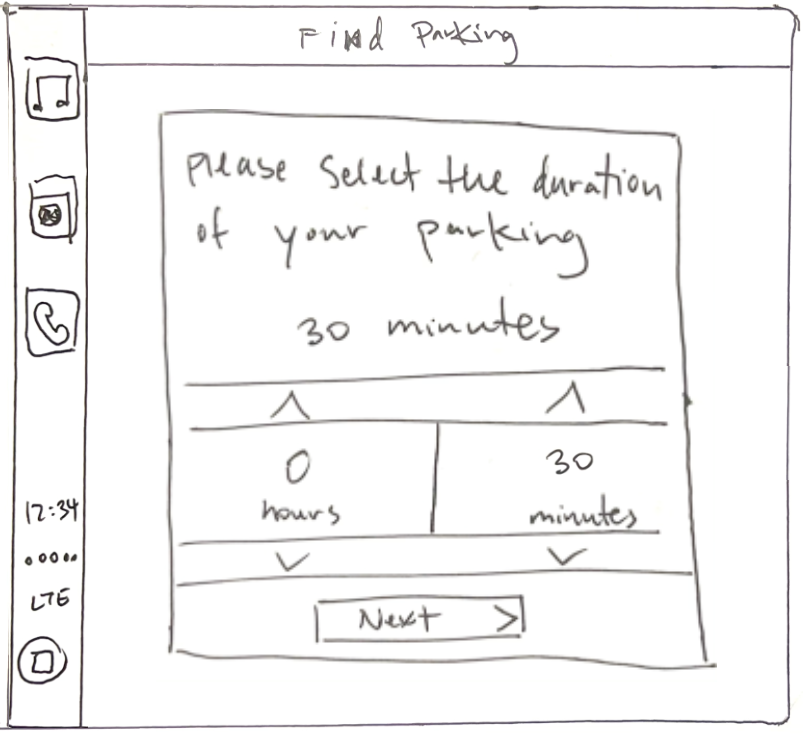 Find Parking
Please Select the duration
of your parking
30 minutes
0
hours
30
minutes
Next >
12:34
LTE